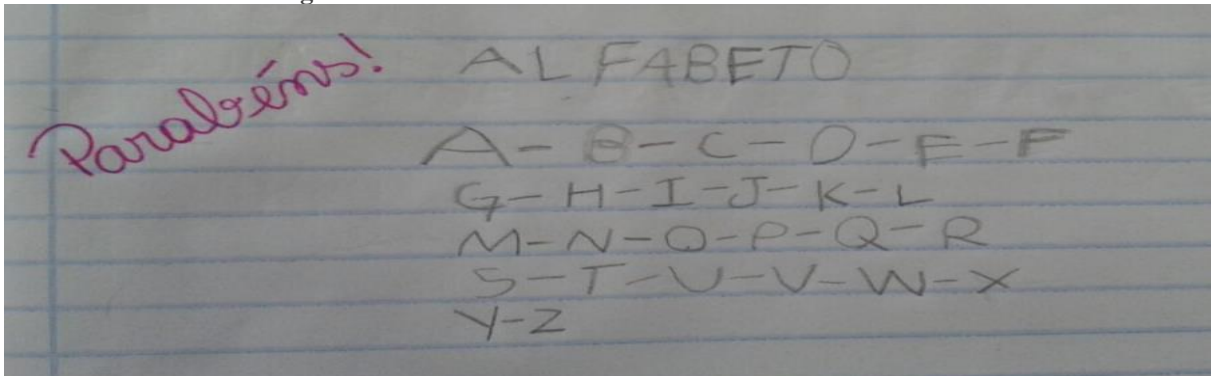 Parabéns!
ALFABETO
A-B-C-D-E-F
G-H-I-J-K-L
M-N-O-P-Q-R
S-T-U-V-W-X
Y-Z